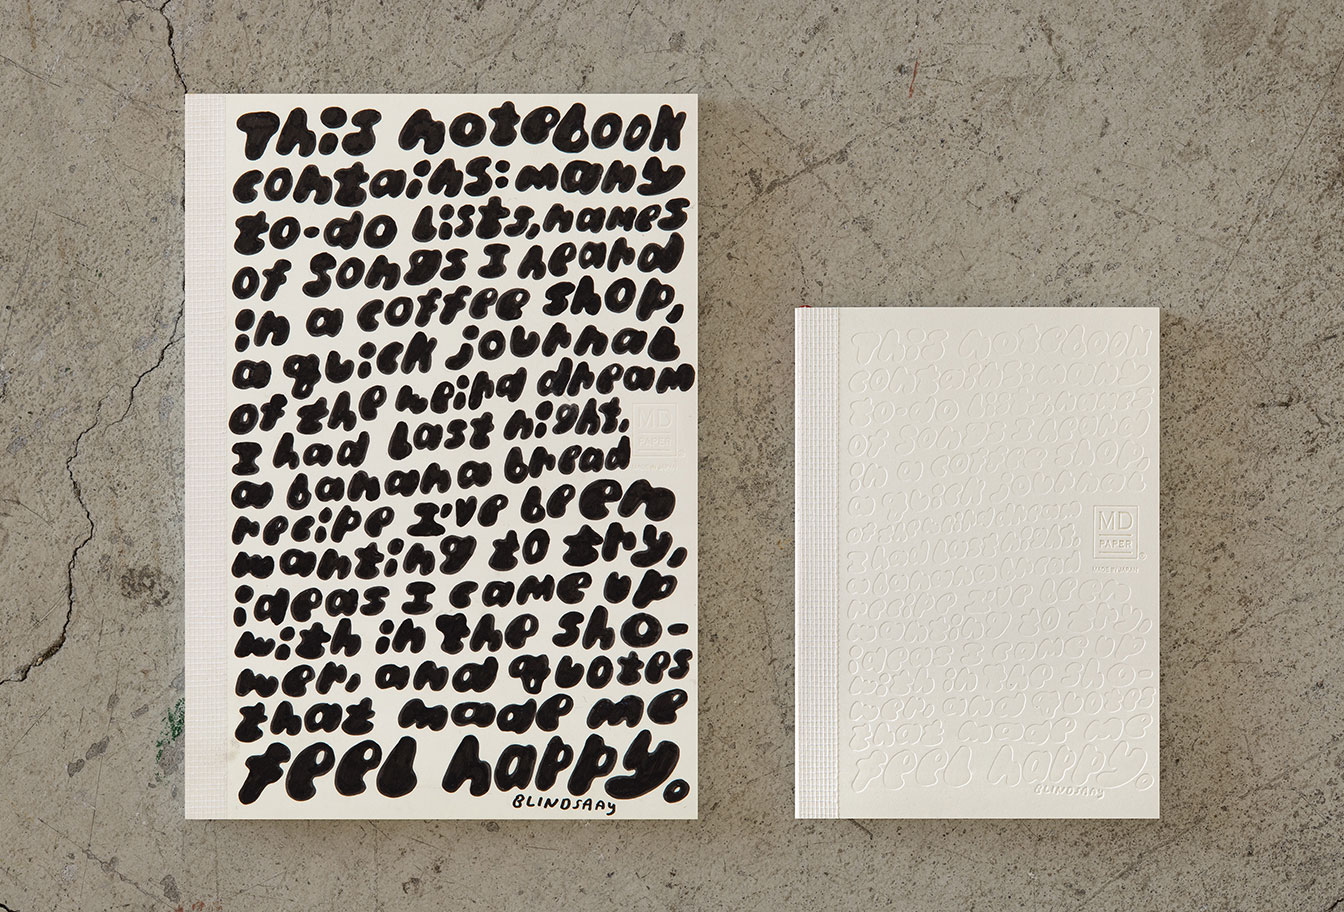 This notebook
contains: many
to-do lists, names
of songs I heard
in a coffee shop,
a quick journal
of the weird dream
I had last night,
a banana bread
recipe I've been
wanting to try,
ideas I came up
with in the sho-
wer, and quotes
that made me
feel happy.
BLINDSAAY
MD
PAPER
MADE IN JAPAN
This notebook
contains: many
to-do lists, names
of songs I heard
in a coffee shop,
a quick journal
of the weird dream
I had last night,
a banana bread
recipe I've been
wanting to try,
ideas I came up
with in the sho-
wer, and quotes
that made me
feel happy.
BLINDSAAY
MD
PAPER
MADE IN JAPAN